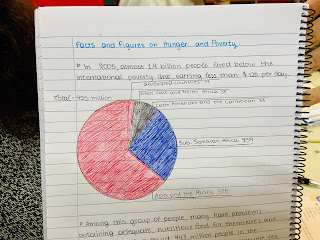 Facts and Figures on Hunger and Poverty:
▹ In 2005, almost 1.4 billion people lived below the
international poverty line, earning less than $1.25 per day.
developed countries
Near East and North Africa
Total = 925 million
Latin American and the Caribbean 53
Sub-Saharan Africa 239
Asia and the Pacific 578
▹ Among this group of people, many have problems
obtaining adequate, nutritious food for themselves and
people in the